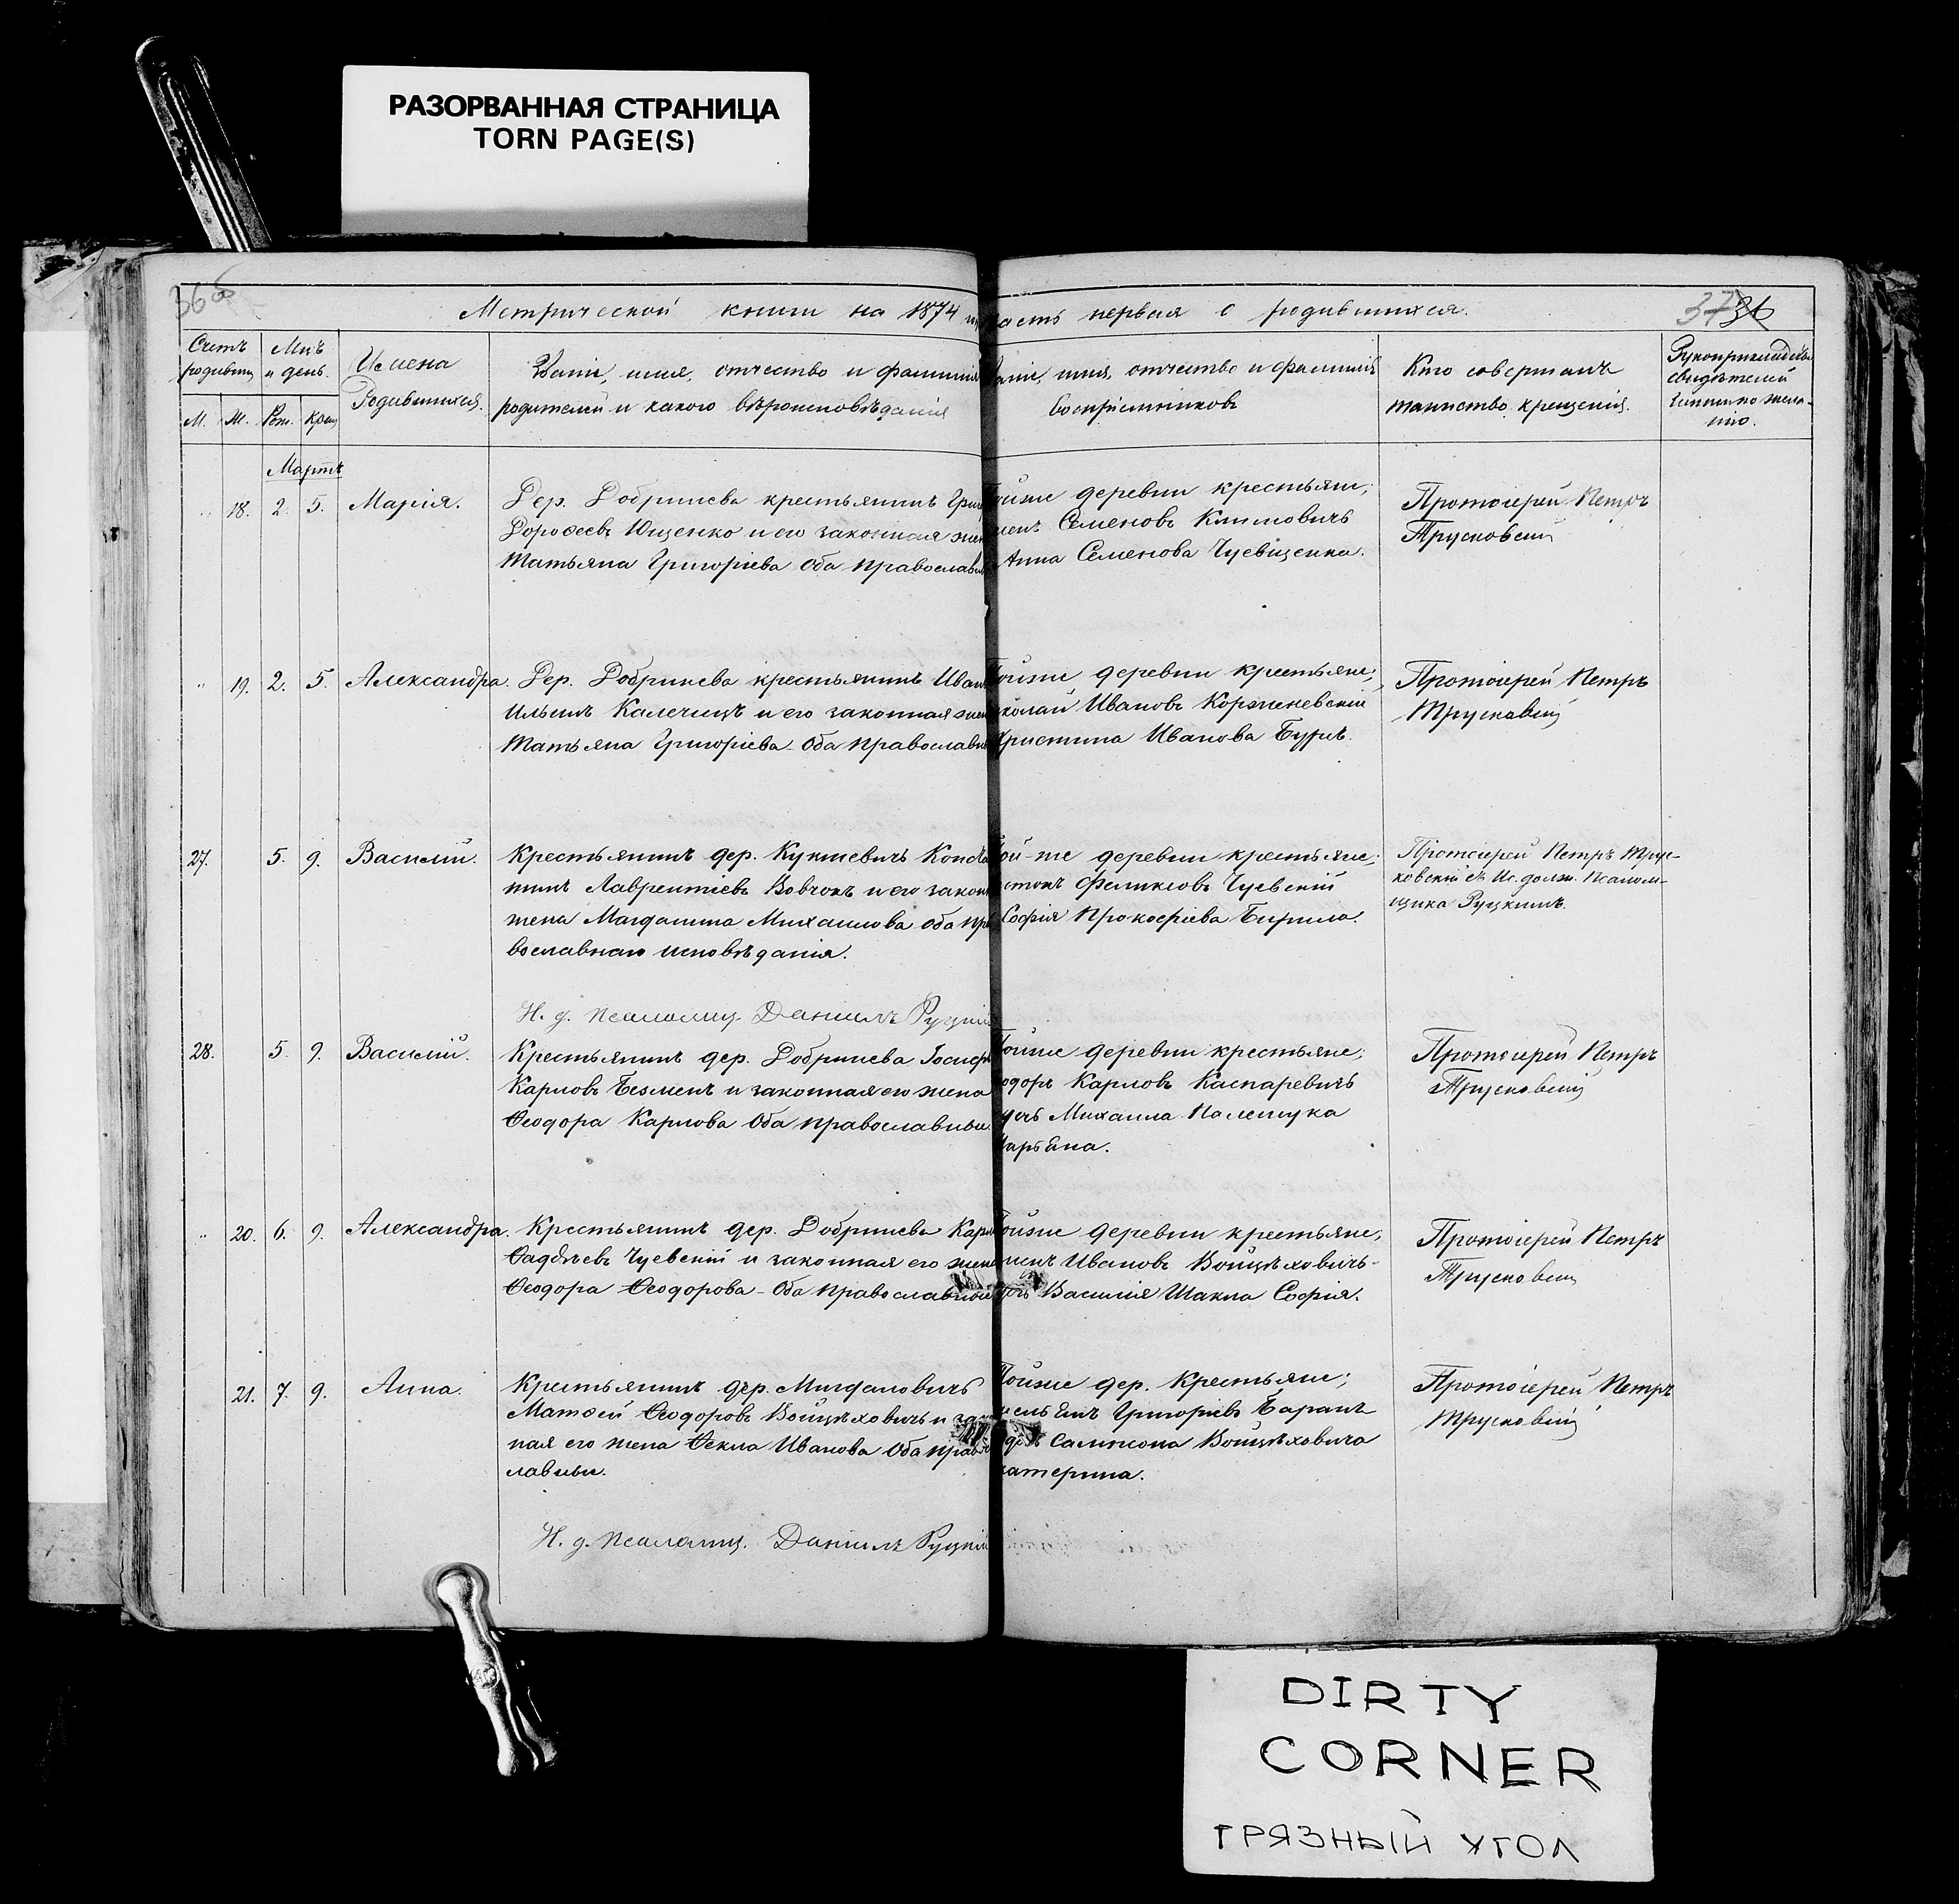 РАЗОРВАННАЯ СТРАНИЦА
TORN PAGE(S)
36 об
Метрической книги на 1874
часть первая о родившихся.
37 36
Счетъ родивших
М. Ж.
Мцъ и день.
Рож. Крещ
Имена
Родившихся.
Званіе, имя, отчество и фамилия
родителей и какого вѣроисповѣданія
Званіе, имя, отчество и фамилія
воспріемниковъ
Кто совершалъ
таинство крещенія.
Рукоприкладство
свидѣтелей
записи по жела-
нію.
Мартъ
18. 2. 5. Марія.
Дер. Добринева крестьянинъ Григ
Дорофеевъ Ющенко и его законная жен
Татьяна Григоріева Оба православн
Тойже деревни крестьяне;
Семеновъ Климовичъ
Анна Семенова Чуевщенка.
Протоіерей Петръ
Трусковскій
19. 2. 5. Александра.
Дер. Добринева крестьянинъ Иван
Ильинъ Калечицъ и его законная жен
Татьяна Григоріева Оба православн
Тойже деревни крестьяне,
колай Ивановъ Корженевскій
Христина Иванова Буръ.
Протоіерей Петръ
Трусковскій
27. 5. 9. Василій.
Крестьянинъ дер. Куктевичъ Конста
тинъ Лаврентіевъ Вовчокъ и его закон
жена Магдалина Михаилова оба пра
вославнаго исповѣданія.
Той-же деревни крестьяне;
Феликсовъ Чуевскій
Софія Прокофіева Бирила.
Протоіерей Петръ Трус-
ковскій съ Ис. долж. Псалом-
щика Руцкимъ.
И. д. псаломщ. Даніилъ Руцкій
28. 5. 9. Василій.
Крестьянинъ дер. Добринева Іосифъ
Карловъ Безменъ и законная его жена
Ѳеодора Карлова Оба православны.
Тойже деревни крестьяне;
одоръ Карловъ Каспаревичъ
дочь Михаила Палешука
Марьяна.
Протоіерей Петръ
Трусковскій
20. 6. 9. Александра.
Крестьянинъ дер. Добринева Карл
Ѳаддѣевъ Чуевскій и законная его жена
Ѳеодора Ѳеодорова - Оба православные
Тойже деревни крестьяне,
Ивановъ Войцѣховичъ -
дочь Василія Шакла Софія.
Протоіерей Петръ
Трусковскій
21. 7. 9. Анна.
Крестьянинъ дер. Мигдаловичъ
Матѳей Ѳеодоровъ Войцѣховичъ и зак
ная его жена Ѳекла Иванова Оба право
славны.
Тойже дер. Крестьяне;
Григорьевъ Баранъ
Сампсона Войцѣховича
катерина.
Протоіерей Петръ
Трусковскій
И. д. псаломщ. Даніилъ Руцкій
DIRTY
CORNER
ГРЯЗНЫЙ УГОЛ